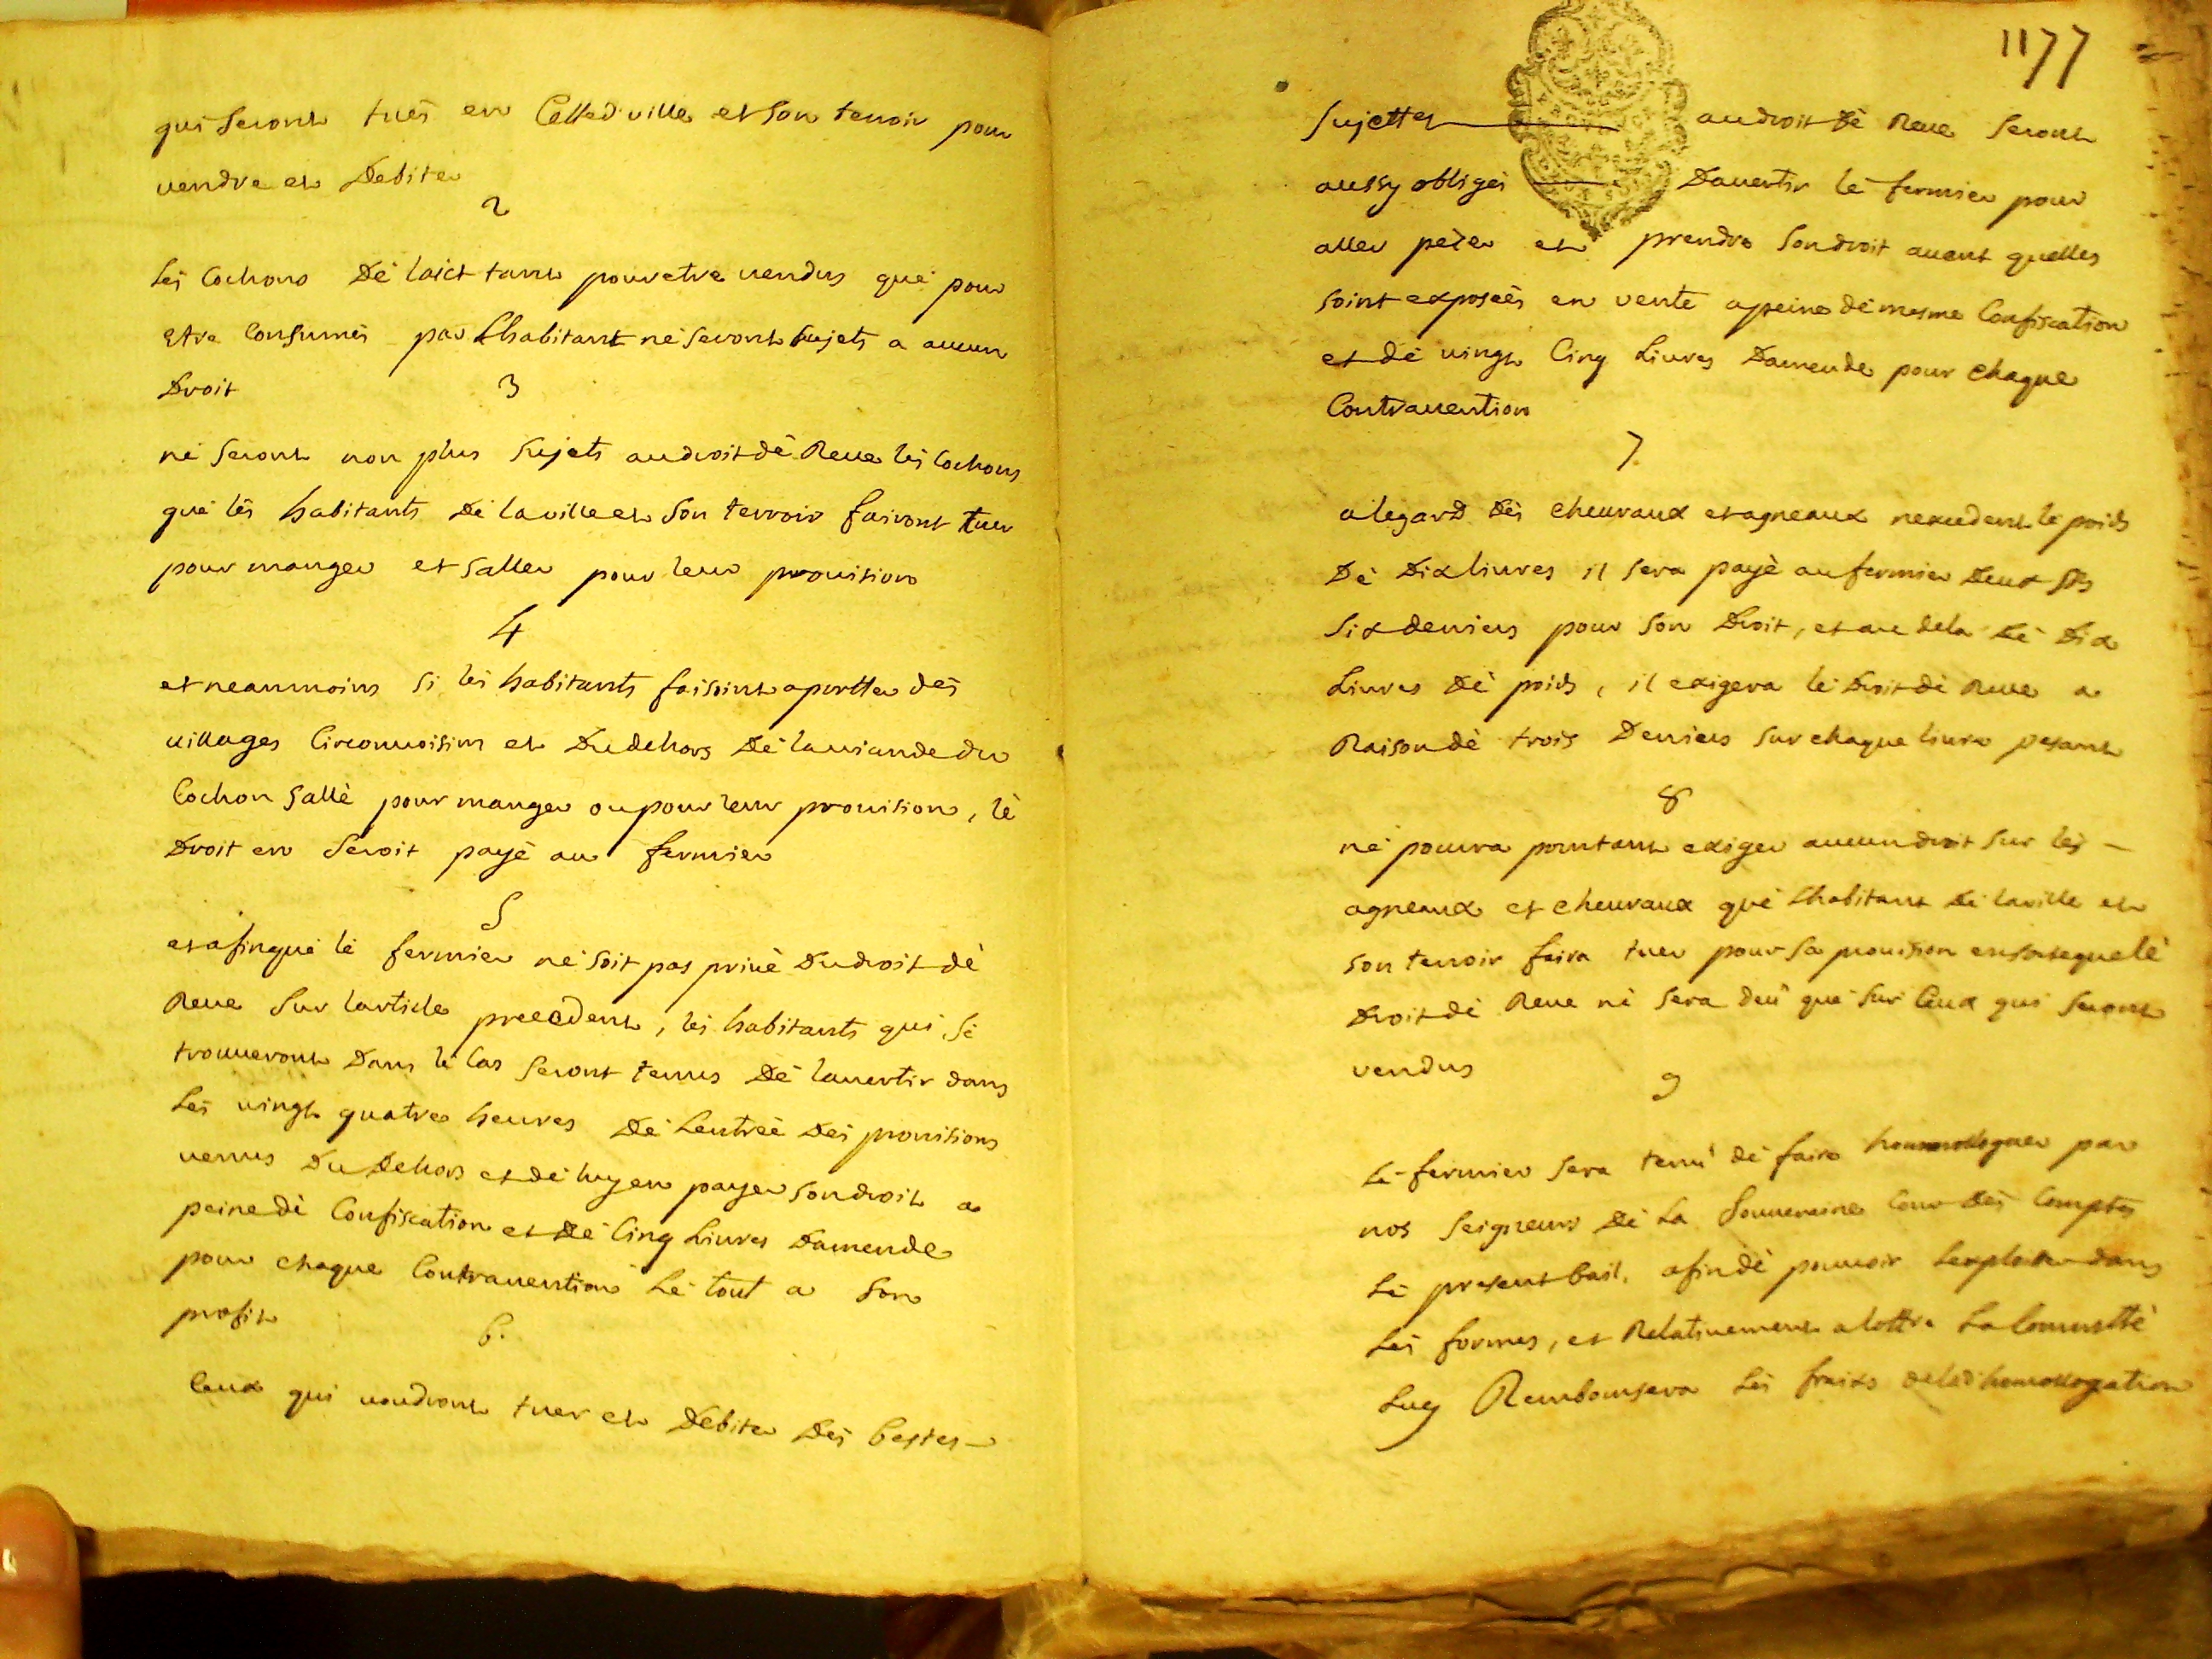 qui seront tués en Cetted ville et son terroir pour
vendre et Debiter
2
Les Cochons Dé laict tant pour etre vendus qué pour
etre Consumés par Lhabitant né seront sujets a aucun
Droit
3
né seront non plus sujets audroit dé Reve lés Cochons
qué lés habitants Dé laville et son terroir fairont tuer
pour manger et saller pour leur provision
4
et neanmoins si lés habitants faisoint aportter dés
villages Circonvoisins et Dudehors Dé laviande du
Cochon sallé pour manger ou pour leur provision, lé
Droit en seroit payé au fermier
5
et afinqué lé fermier né soit pas privé Dudroit dé
Reve sur larticle precedent, lés habitants qui sé
trouveront Dans lé Cas seront tenus Dé lavertir dans
Lés vingt quatre heures Dé Lentréé Dés provisions
venus Du Dehors et dé luy en payer son droit a
peine dé Confiscation et Dé Cinq Livres Damende
pour chaque Contravention Lé tout a son
profit
6.
Ceux qui voudront tuer et Debiter Dés bestes
1177
sujettes au droit Dé Reve seront
aussy obligés Davertir lé fermier pour
aller pezer et prendre son droit avant quelles
soint exposéés en vente apeine dé mesme Confiscation
et dé vingt Cinq Livres Damende pour chaque
Contravention
7.
a légard Dés chevraux et agneaux nexcedent lé poids
Dé Dix livres il sera payé au fermier Deux sls
six deniers pour son Droit, et au dela Dé Dix
Livres Dé poids, il exigera lé Droit dé Reve a
Raison dé trois Deniers sur chaque livre pesant
8
né pourra pourtant exiger aucun droit sur lés
agneaux et chevraux qué Lhabitant Dé laville et
son terroir faira tuer pour sa provision ensorte que lé
Droit dé Reve né sera deü qué sur Ceux qui seront
vendus
9
Lé fermier sera tenü dé faire homologuer par
nos seigneurs Dé La souveraine Cour Dés Comptes
Lé present bail, afin dé pouvoir Lexploiter dans
Lés formes, et Relativement a loffre La Communtté
Luy Remboursera Lés fraixs de lad homologation